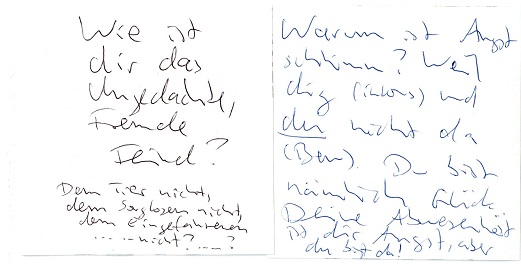 Wie ist
dir das
Ungedachte,
Fremde
Feind?
Dem Tier nicht,
dem Sorglosen nicht,
dem Eingefahrenen
.... nicht? ....?
Warum ist Angst
schlimm? Weil
ding und
du nicht da
(Bew). Du bist
nämlich Glück
Deine Abwesenheit
ist dir Angst, aber
du bist da!